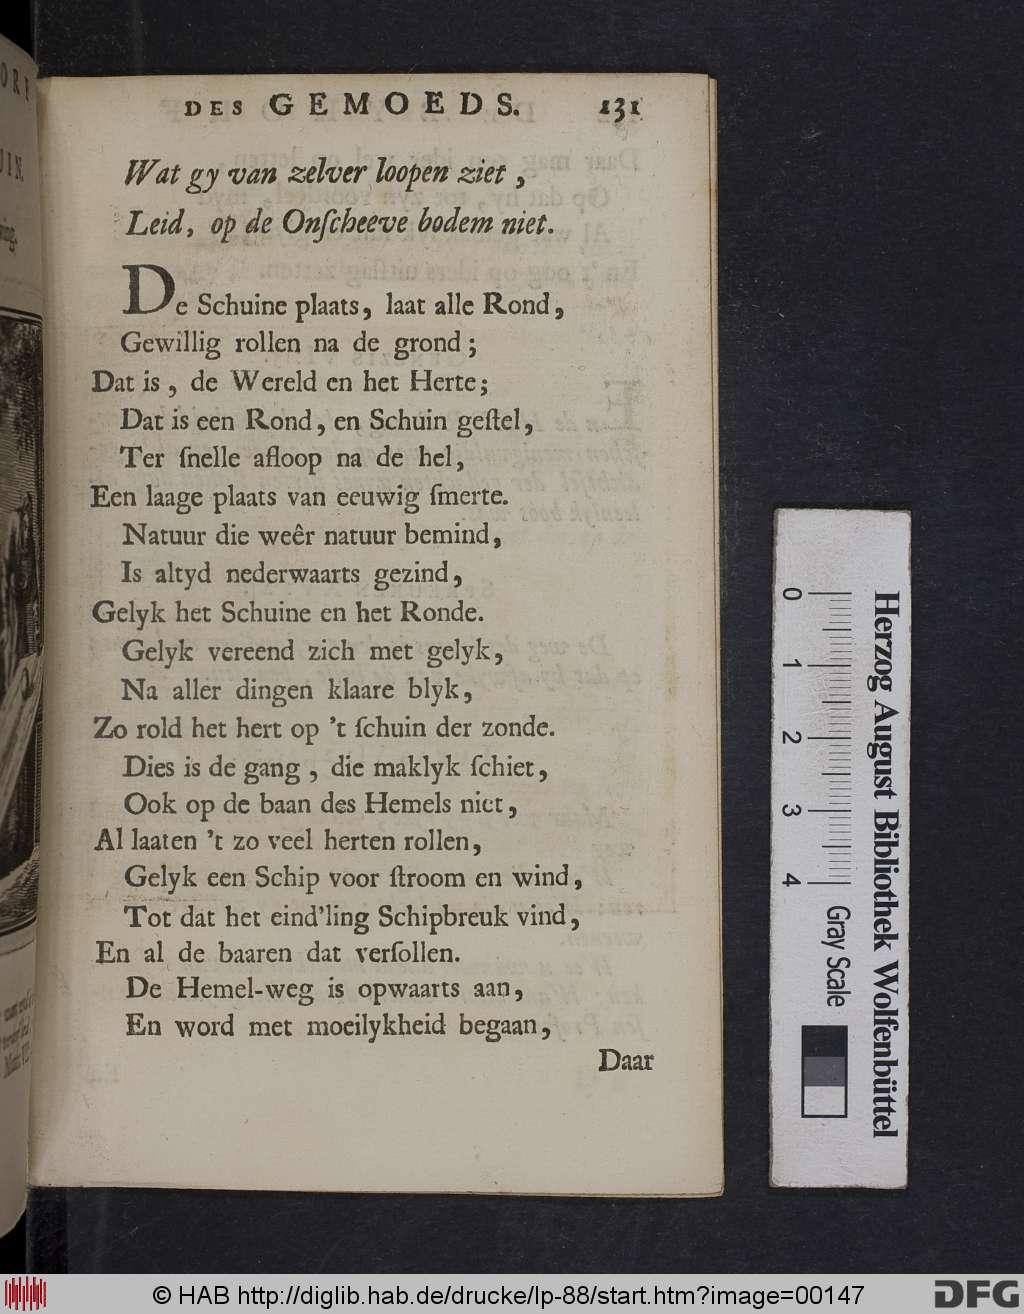 DES GEMOEDS. 131
Wat gy van zelver loopen ziet,
Leid, op de Onſcheeve bodem niet.
De Schuine plaats, laat alle Rond,
Gewillig rollen na de grond;
Dat is, de Wereld en het Herte;
Dat is een Rond, en Schuin geſtel,
Ter ſnelle afloop na de hel,
Een laage plaats van eeuwig ſmerte.
Natuur die weêr natuur bemind,
Is altyd nederwaarts gezind,
Gelyk het Schuine en het Ronde.
Gelyk vereend zich met gelyk,
Na aller dingen klaare blyk,
Zo rold het hert op 't ſchuin der zonde.
Dies is de gang, die maklyk ſchiet,
Ook op de baan des Hemels niet,
Al laaten 't zo veel herten rollen,
Gelyk een Schip voor ſtroom en wind,
Tot dat het eind'ling Schipbreuk vind,
En al de baaren dat verſollen.
De Hemel-weg is opwaarts aan,
En word met moeilykheid begaan,
Daar
0 1 2 3 4
Gray Scale
Herzog August Bibliothek Wolfenbüttel
© HAB http://diglib.hab.de/drucke/lp-88/start.htm?image=00147
DFG